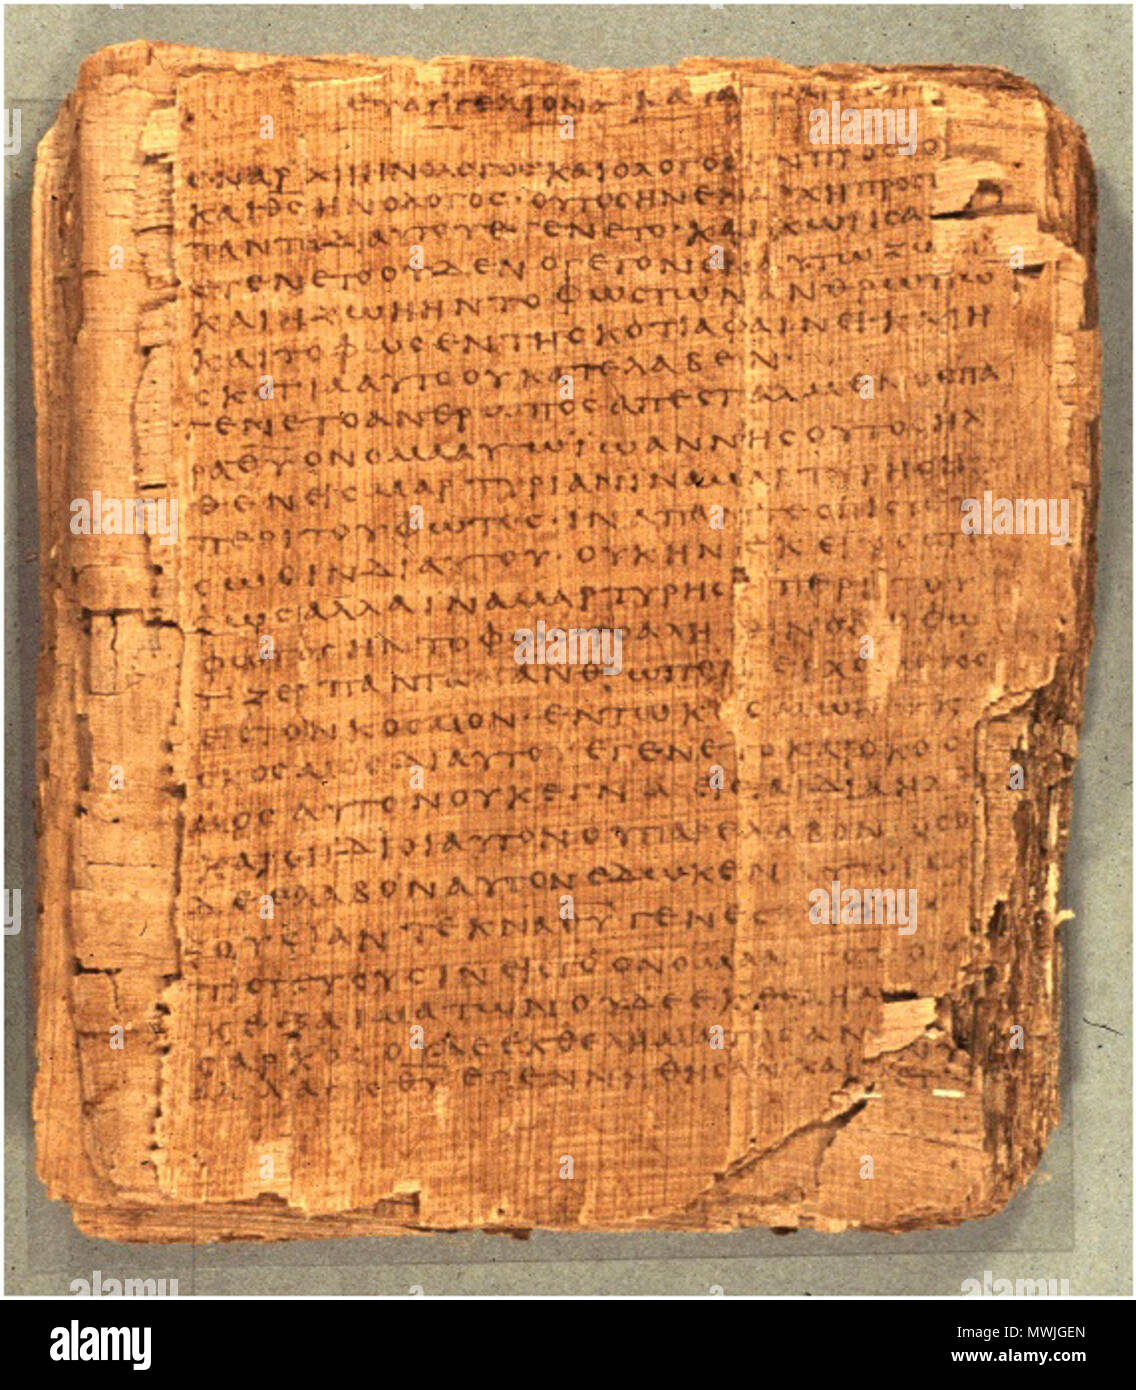 ΕΥΑΓΓΕΛΙΟΝ ΚΑΤΑ
ΕΝΑΡΧΗΗΝΟΛΟΓΟϹΚΑΙΟΛΟΓΟϹΗΝΠΡΟϹΤΟ
ΚΑΙΘ̅Ϲ̅ΗΝΟΛΟΓΟϹ·ΟΥΤΟϹΗΝΕΝΑΡΧΗΠΡΟϹΤ
ΠΑΝΤΑΔΙΑΥΤΟΥΕΓΕΝΕΤΟ·ΚΑΙΧΩΡΙϹΑ
ΕΓΕΝΕΤΟΟΥΔΕΝΟΓΕΓΟΝΕΝΕΝΑΥΤΩΖΩΗ
ΚΑΙΗΖΩΗΗΝΤΟΦΩϹΤΩΝΑΝΘΡΩΠΩ
ΚΑΙΤΟΦΩϹΕΝΤΗϹΚΟΤΙΑΦΑΙΝΕΙ·ΚΑΙΗ
ϹΚΟΤΙΑΑΥΤΟΟΥΚΑΤΕΛΑΒΕΝ·
ΓΕΝΕΤΟΑΝΘΡΩΠΟϹΑΠΕϹΤΑΛΜΕΝΟϹΠΑ
ΡΑΘ̅Υ̅ΟΝΟΜΑΑΥΤΩΙΩΑΝΝΗϹΟΥΤΟϹΗΛ
ΘΕΝΕΙϹΜΑΡΤΥΡΙΑΝΙΝΑΜΑΡΤΥΡΗϹΗ
ΠΕΡΙΤΟΥΦΩΤΟϹ·ΙΝΑΠΑΝΤΕϹΠΙϹΤΕΥ
ϹΩϹΙΝΔΙΑΥΤΟΥ·ΟΥΚΗΝΕΚΕΙΝΟϹΤΟ
ΦΩϹΑΛΛΑΙΝΑΜΑΡΤΥΡΗϹΗΠΕΡΙΤΟΥ
ΦΩΤΟϹΗΝΤΟΦΩϹΤΟΑΛΗΘΙΝΟΝΟΦΩ
ΤΙΖΕΙΠΑΝΤΑΑΝΘΡΩΠΟΝΕΡΧΟΜΕΝΟΝ
ΕΙϹΤΟΝΚΟϹΜΟΝ·ΕΝΤΩΚΟϹΜΩΗΝ
ΚΟϹΜΟϹΔΙΑΥΤΟΥΕΓΕΝΕΤΟΚΑΙΟΚΟϹ
ΜΟϹΑΥΤΟΝΟΥΚΕΓΝΩΕΙϹΤΑΙΔΙΑΗΛ
ΚΑΙΟΙΙΔΙΟΙΑΥΤΟΝΟΥΠΑΡΕΛΑΒΟΝ·ΟϹΟΙ
ΔΕΕΛΑΒΟΝΑΥΤΟΝΕΔΩΚΕΝΑΥΤΟΙϹΕ
ΞΟΥϹΙΑΝΤΕΚΝΑΘ̅Υ̅ΓΕΝΕϹ
ΠΙϹΤΕΥΟΥϹΙΝΕΙϹΤΟΟΝΟΜΑΑΥΤΟΥ
ΚΕΞΑΙΜΑΤΩΝΟΥΔΕΕΚΘΕΛΗΜΑ
ϹΑΡΚΟϹΟΥΔΕΕΚΘΕΛΗΜΑΤΟϹΑΝ
ΑΛΛΑΕΚΘ̅Υ̅ΕΓΕΝΝΗΘΗϹΑΝΚΑΙ
alamy
Image ID: MWJGEN
www.alamy.com